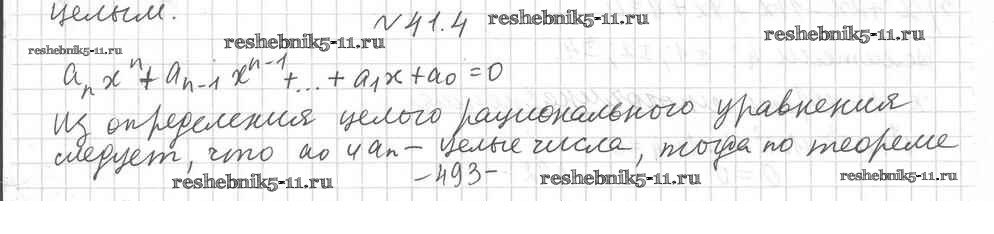 целым.
№41.4 reshebnik5-11.ru
reshebnik5-11.ru reshebnik5-11.ru reshebnik5-11.ru
aₙxⁿ + aₙ₋₁xⁿ⁻¹ + ... + a₁x + a₀ = 0
Из определения целого рационального уравнения
следует, что a₀ и aₙ – целые числа, тогда по теореме
reshebnik5-11.ru –493– reshebnik5-11.ru reshebnik5-11.ru